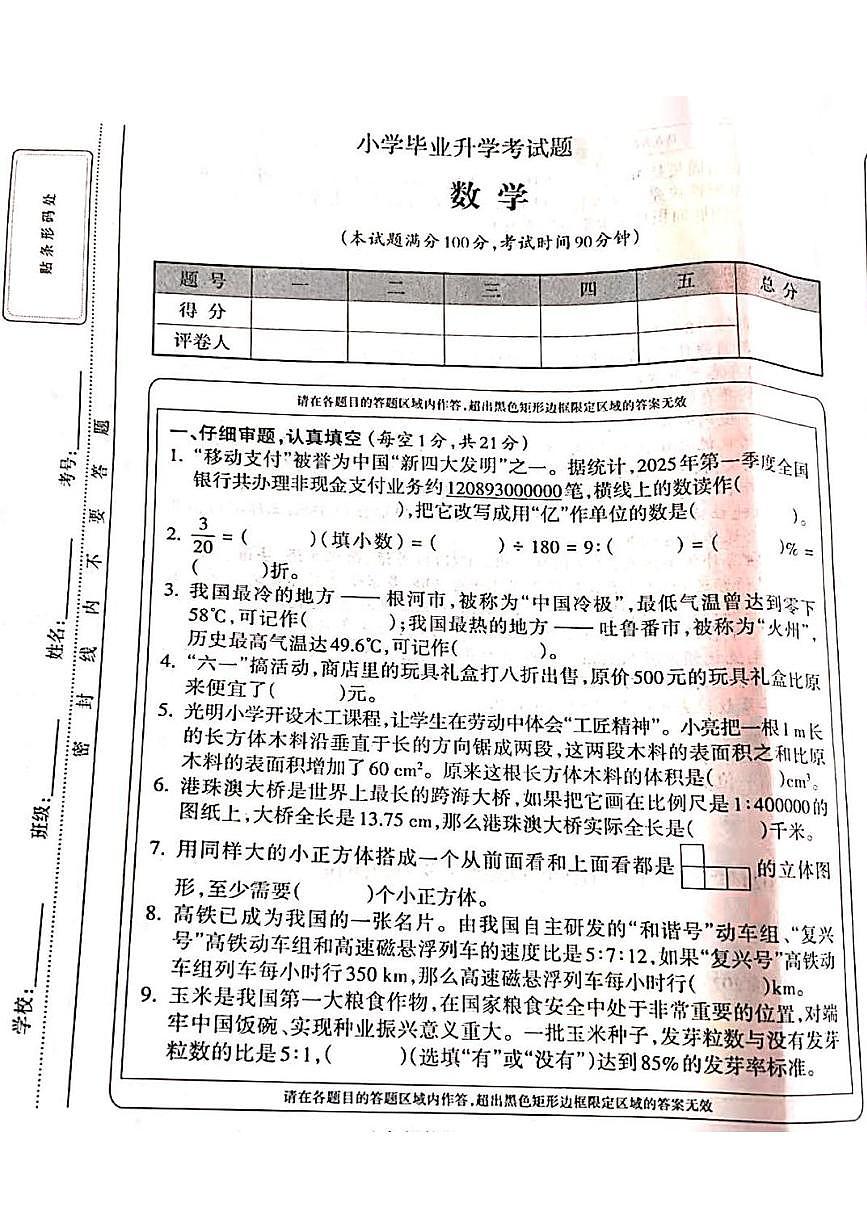 小学毕业升学考试题
数 学
(本试题满分100分,考试时间90分钟)
题 号 一 二 三 四 五 总 分
得 分
评卷人
贴条形码处
学校:
班级:
姓名:
考号:
密 封 线 内 不 要 答 题
请在各题目的答题区域内作答,超出黑色矩形边框限定区域的答案无效
一、仔细审题,认真填空(每空1分,共21分)
1. “移动支付”被誉为中国“新四大发明”之一。据统计,2025年第一季度全国
银行共办理非现金支付业务约120893000000笔,横线上的数读作(
),把它改写成用“亿”作单位的数是( )。
2. 3/20 = ( )(填小数) = ( ) ÷ 180 = 9 : ( ) = ( )% =
( )折。
3. 我国最冷的地方 —— 根河市,被称为“中国冷极”,最低气温曾达到零下
58℃,可记作( );我国最热的地方 —— 吐鲁番市,被称为“火州”,
历史最高气温达49.6℃,可记作( )。
4. “六一”搞活动,商店里的玩具礼盒打八折出售,原价500元的玩具礼盒比原
来便宜了( )元。
5. 光明小学开设木工课程,让学生在劳动中体会“工匠精神”。小亮把一根1m长
的长方体木料沿垂直于长的方向锯成两段,这两段木料的表面积之和比原
木料的表面积增加了60 cm²。原来这根长方体木料的体积是( )cm³。
6. 港珠澳大桥是世界上最长的跨海大桥,如果把它画在比例尺是1:400000的
图纸上,大桥全长是13.75 cm,那么港珠澳大桥实际全长是( )千米。
7. 用同样大的小正方体搭成一个从前面看和上面看都是 的立体图
形,至少需要( )个小正方体。
8. 高铁已成为我国的一张名片。由我国自主研发的“和谐号”动车组、“复兴
号”高铁动车组和高速磁悬浮列车的速度比是5:7:12,如果“复兴号”高铁动
车组列车每小时行350 km,那么高速磁悬浮列车每小时行( )km。
9. 玉米是我国第一大粮食作物,在国家粮食安全中处于非常重要的位置,对端
牢中国饭碗、实现种业振兴意义重大。一批玉米种子,发芽粒数与没有发芽
粒数的比是5:1,( )(选填“有”或“没有”)达到85%的发芽率标准。
请在各题目的答题区域内作答,超出黑色矩形边框限定区域的答案无效